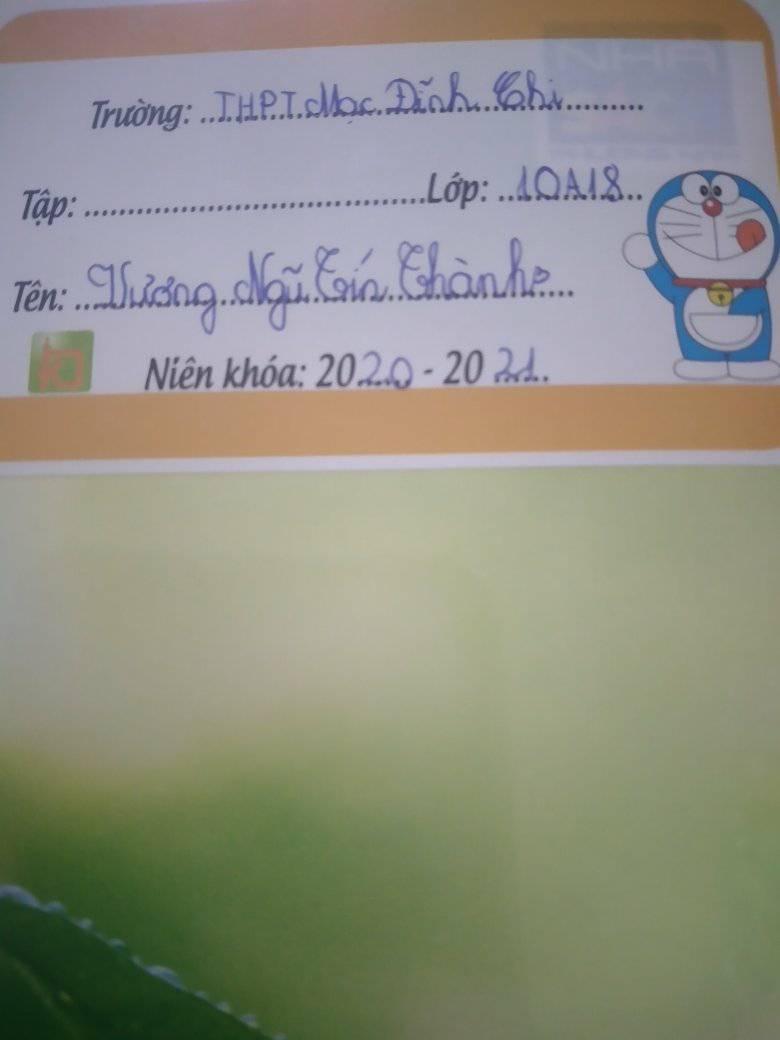 Trường: THPT Mạc Đĩnh Chi
Tập: Lớp: 10A18
Tên: Vương Ngũ Tín Thành
Niên khóa: 2020 - 2021